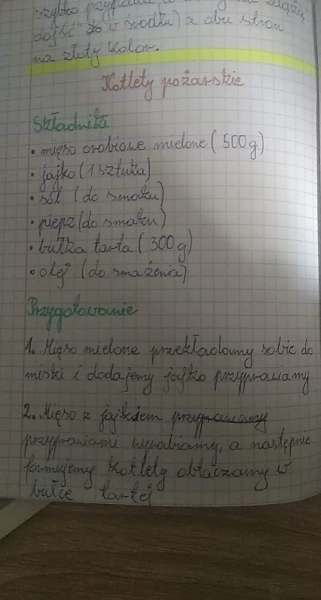 dojść do w środku) z obu stron
na złoty kolor.
Kotlety pożarskie
Składniki
• mięso drobiowe mielone (500g)
• jajko (1 sztuka)
• sól (do smaku)
• pieprz (do smaku)
• bułka tarta (300g)
• olej (do smażenia)
Przygotowanie
1. Mięso mielone przekładamy sobie do
miski i dodajemy jajko przyprawiamy
2. Mięso z jajkiem przyprawiamy
przyprawami wyrabiamy, a następnie
formujemy kotlety obtaczamy w
bułce tartej